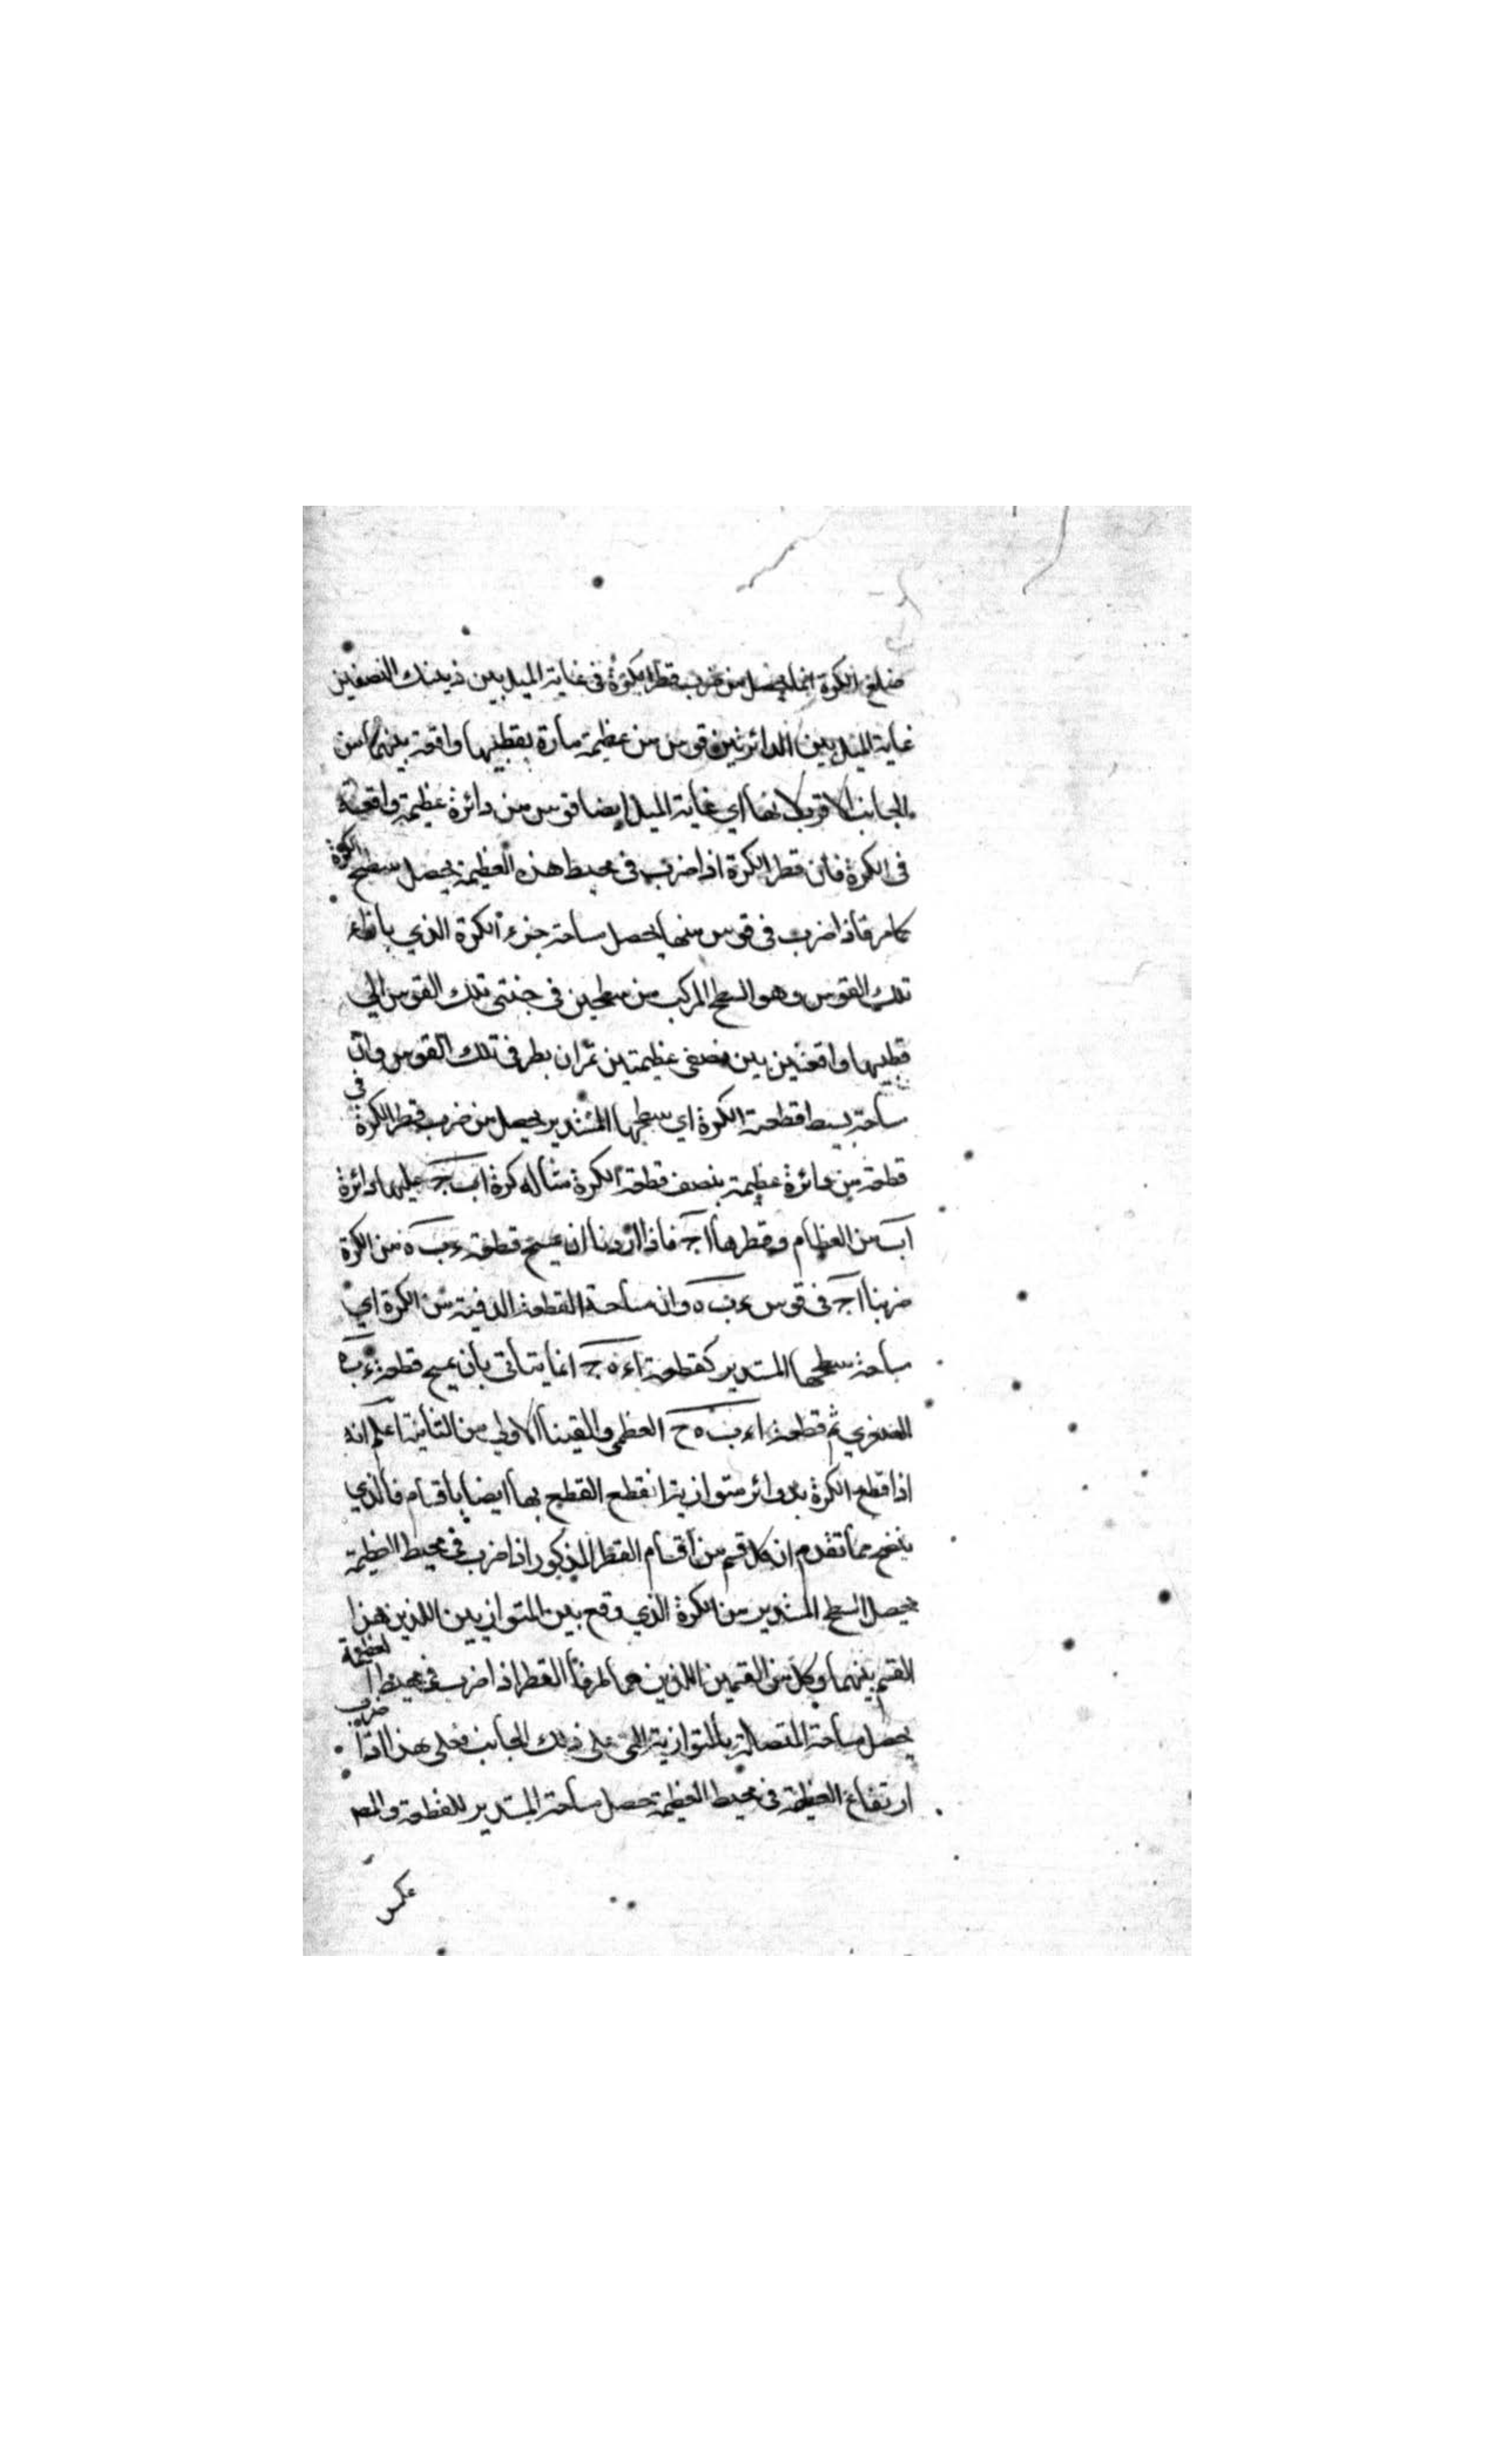 ضلع الكرة انما يحصل من ضرب قطر الكرة فى غاية الميل بين ذينك النصفين
غاية الميل بين الدائرتين قوس من عظيمة مارة بقطبيها واقعة بينهما من
الجانب الاقرب لانها اي غاية الميل ايضا قوس من دائرة عظيمة واقعة
فى الكرة فان قطر الكرة اذا ضرب فى محيط هذه العظيمة يحصل سطح الكرة
كما مر فاذا ضرب فى قوس منها يحصل مساحة جزء الكرة الذي بازاء
تلك القوس وهو السطح المركب من سطحين فى جنبتى تلك القوس الي
قطبيها واقعتين بين نصفى عظيمتين تمران بطرفى تلك القوس وان
مساحة بسيط قطعة الكرة اي سطحها المستدير يحصل من ضرب قطر الكرة فى
قطعة من دائرة عظيمة بنصف قطعة الكرة مثاله كرة ا ب ج عليها دائرة
ا ب من العظام وقطرها ا ج فاذا اردنا ان نمسح قطعة ء ب ه من الكرة
ضربنا ا ج فى قوس ء ب ه وان مساحة القطعة الدفية من الكرة اي
مساحة سطحها المستدير كقطعة ا ء ه ج انما يتأتى بان نمسح قطعة ء ب ه
الصغري ثم قطعة ا ء ب ه ج العظمى والقينا الاولى من الثانية اعلم انه
اذا قطع الكرة بدوائر متوازية انقطع القطع بها ايضا باقسام فالذي
يتضح مما تقدم ان كل قسم من اقسام القطر المذكور اذا ضرب فى محيط العظيمة
يحصل السطح المستدير من الكرة الذي وقع بين المتوازيين اللذين هذا
القسم بينهما وكل من القسمين اللذين هما طرفا القطر اذا ضرب فى محيط العظيمة
يحصل مساحة المتصلة بالمتوازية التى على ذلك الجانب فعلى هذا اذا ضرب
ارتفاع العظيمة فى محيط العظيمة حصل مساحة المستدير للقطعة
عكس